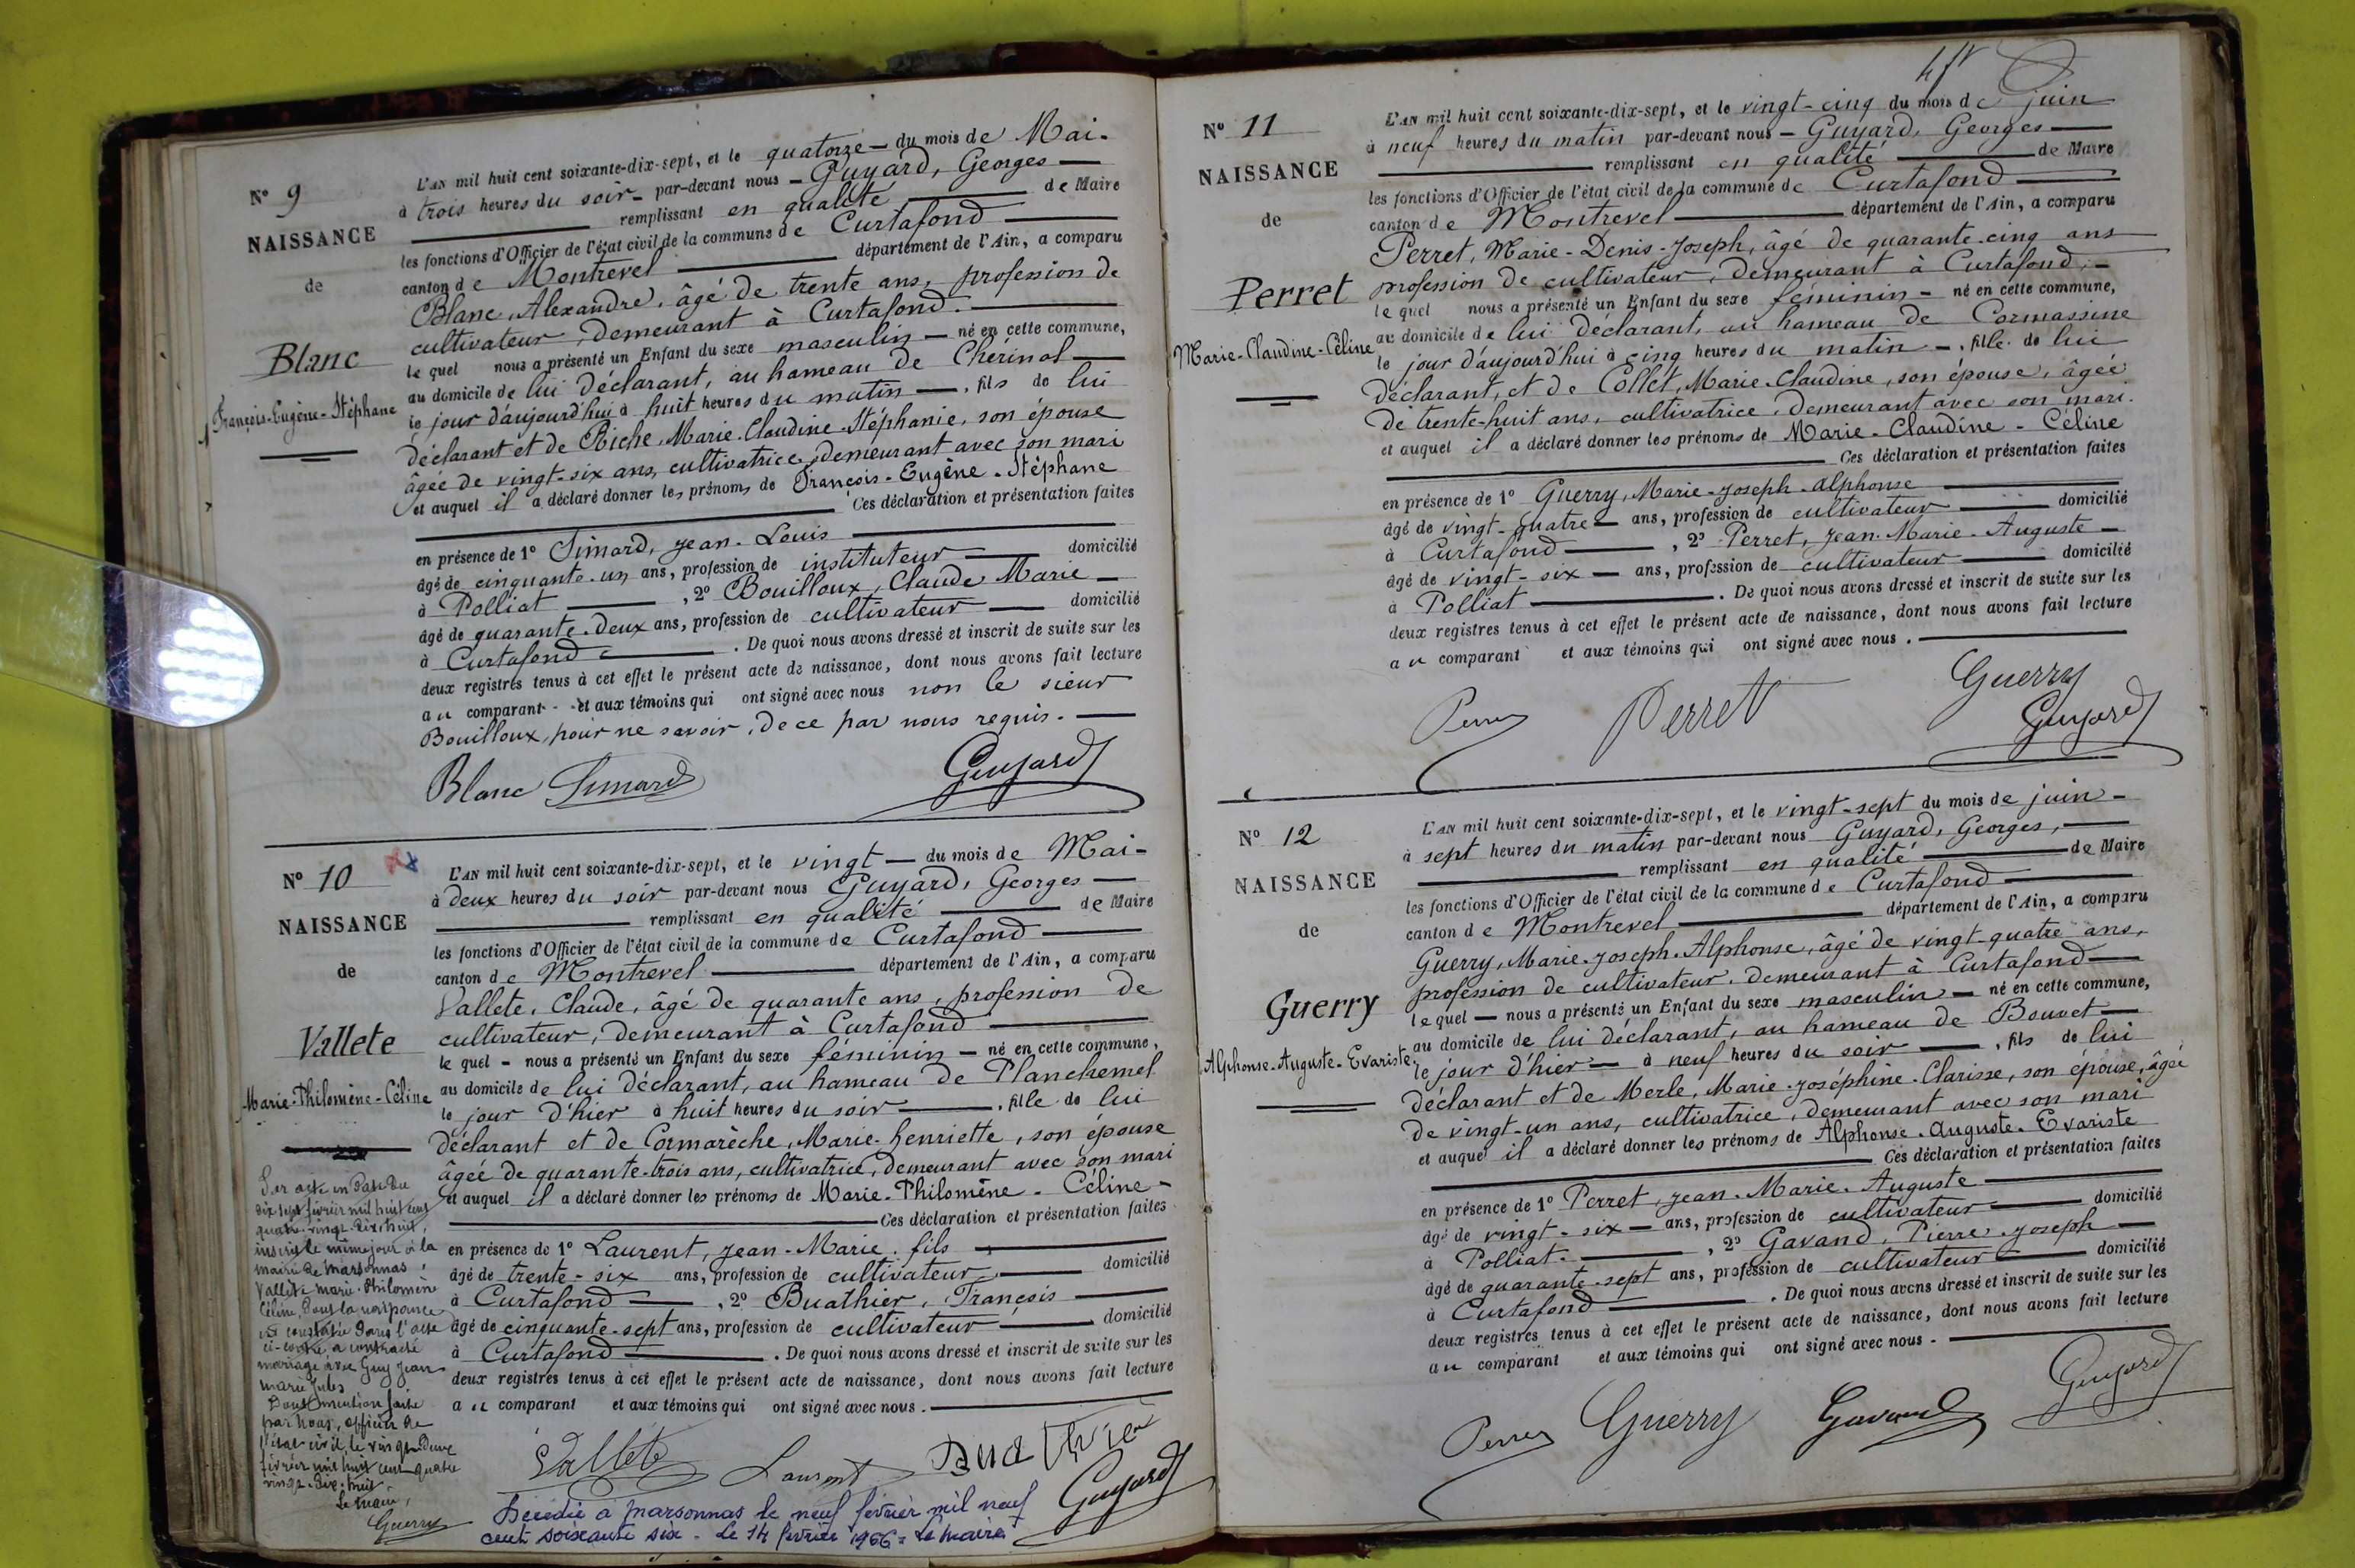 N° 9
NAISSANCE
de
Blanc
François-Eugène-Stéphane
L'AN mil huit cent soixante-dix-sept, et le quatorze du mois de Mai.
à trois heures du soir par-devant nous Guyard, Georges
remplissant en qualité de Maire
les fonctions d'Officier de l'état civil de la commune de Curtafond
canton de Montrevel département de l'Ain, a comparu
Blanc, Alexandre, âgé de trente ans, profession de
cultivateur, demeurant à Curtafond.
lequel nous a présenté un Enfant du sexe masculin né en cette commune,
au domicile de lui déclarant, au hameau de Chérinal
le jour d'aujourd'hui à huit heures du matin, fils de lui
déclarant et de Riche, Marie-Claudine-Stéphanie, son épouse
âgée de vingt-six ans, cultivatrice, demeurant avec son mari
et auquel il a déclaré donner les prénoms de François-Eugène-Stéphane
Ces déclaration et présentation faites
en présence de 1° Simard, Jean-Louis
âgé de cinquante-un ans, profession de instituteur domicilié
à Polliat, 2° Bouilloux, Claude Marie
âgé de quarante-deux ans, profession de cultivateur domicilié
à Curtafond. De quoi nous avons dressé et inscrit de suite sur les
deux registres tenus à cet effet le présent acte de naissance, dont nous avons fait lecture
au comparant et aux témoins qui ont signé avec nous non le sieur
Bouilloux, pour ne savoir, de ce par nous requis.
Blanc Simard Guyard
N° 10
NAISSANCE
de
Vallete
Marie-Philomène-Céline
L'AN mil huit cent soixante-dix-sept, et le vingt du mois de Mai
à deux heures du soir par-devant nous Guyard, Georges
remplissant en qualité de Maire
les fonctions d'Officier de l'état civil de la commune de Curtafond
canton de Montrevel département de l'Ain, a comparu
Vallete, Claude, âgé de quarante ans, profession de
cultivateur, demeurant à Curtafond
lequel nous a présenté un Enfant du sexe féminin né en cette commune,
au domicile de lui déclarant, au hameau de Planchemel
le jour d'hier à huit heures du soir, fille de lui
déclarant et de Cormarèche, Marie-henriette, son épouse
âgée de quarante-trois ans, cultivatrice, demeurant avec son mari
et auquel il a déclaré donner les prénoms de Marie-Philomène-Céline
Ces déclaration et présentation faites
en présence de 1° Laurent, Jean-Marie fils
âgé de trente-six ans, profession de cultivateur domicilié
à Curtafond, 2° Buathier, François
âgé de cinquante-sept ans, profession de cultivateur domicilié
à Curtafond. De quoi nous avons dressé et inscrit de suite sur les
deux registres tenus à cet effet le présent acte de naissance, dont nous avons fait lecture
au comparant et aux témoins qui ont signé avec nous.
Vallete Laurent Buathier
Guyard
Par acte en date du
dix sept février mil huit cent
quatre-vingt-dix-huit,
inscrit le même jour à la
mairie de Marsonnas,
Vallete Marie-Philomène
Céline, dont la naissance
est constatée dans l'acte
ci-contre a contracté
mariage avec Guy Jean
Marie Jules
Dont mention faite
par nous, officier de
l'état civil, le vingt-deux
février mil huit cent quatre
vingt-dix-huit.
Le Maire,
Guerry
Décédée à Marsonnas le neuf février mil neuf
cent soixante six - Le 14 février 1966 = Le Maire
N° 11
NAISSANCE
de
Perret
Marie-Claudine-Céline
L'AN mil huit cent soixante-dix-sept, et le vingt-cinq du mois de juin
à neuf heures du matin par-devant nous Guyard, Georges
remplissant en qualité de Maire
les fonctions d'Officier de l'état civil de la commune de Curtafond
canton de Montrevel département de l'Ain, a comparu
Perret, Marie-Denis-Joseph, âgé de quarante-cinq ans
profession de cultivateur, demeurant à Curtafond,
lequel nous a présenté un Enfant du sexe féminin né en cette commune,
au domicile de lui déclarant, au hameau de Cormassine
le jour d'aujourd'hui à cinq heures du matin, fille de lui
déclarant, et de Collet, Marie-Claudine, son épouse, âgée
de trente-huit ans, cultivatrice, demeurant avec son mari.
et auquel il a déclaré donner les prénoms de Marie-Claudine-Céline
Ces déclaration et présentation faites
en présence de 1° Guerry, Marie-Joseph-Alphonse
âgé de vingt-quatre ans, profession de cultivateur domicilié
à Curtafond, 2° Perret, Jean-Marie-Auguste
âgé de vingt-six ans, profession de cultivateur domicilié
à Polliat. De quoi nous avons dressé et inscrit de suite sur les
deux registres tenus à cet effet le présent acte de naissance, dont nous avons fait lecture
au comparant et aux témoins qui ont signé avec nous.
Perret Guerry
Guyard
N° 12
NAISSANCE
de
Guerry
Alphonse-Auguste-Evariste
L'AN mil huit cent soixante-dix-sept, et le vingt-sept du mois de juin
à sept heures du matin par-devant nous Guyard, Georges,
remplissant en qualité de Maire
les fonctions d'Officier de l'état civil de la commune de Curtafond
canton de Montrevel département de l'Ain, a comparu
Guerry, Marie-Joseph-Alphonse, âgé de vingt-quatre ans,
profession de cultivateur, demeurant à Curtafond
lequel nous a présenté un Enfant du sexe masculin né en cette commune,
au domicile de lui déclarant, au hameau de Bouvet
le jour d'hier à neuf heures du soir, fils de lui
déclarant et de Merle, Marie-Joséphine-Clarisse, son épouse, âgée
de vingt-un ans, cultivatrice, demeurant avec son mari
et auquel il a déclaré donner les prénoms de Alphonse-Auguste-Evariste
Ces déclaration et présentation faites
en présence de 1° Perret, Jean-Marie-Auguste
âgé de vingt-six ans, profession de cultivateur domicilié
à Polliat, 2° Gavand, Pierre-Joseph
âgé de quarante-sept ans, profession de cultivateur domicilié
à Curtafond. De quoi nous avons dressé et inscrit de suite sur les
deux registres tenus à cet effet le présent acte de naissance, dont nous avons fait lecture
au comparant et aux témoins qui ont signé avec nous.
Guerry Gavand Guyard